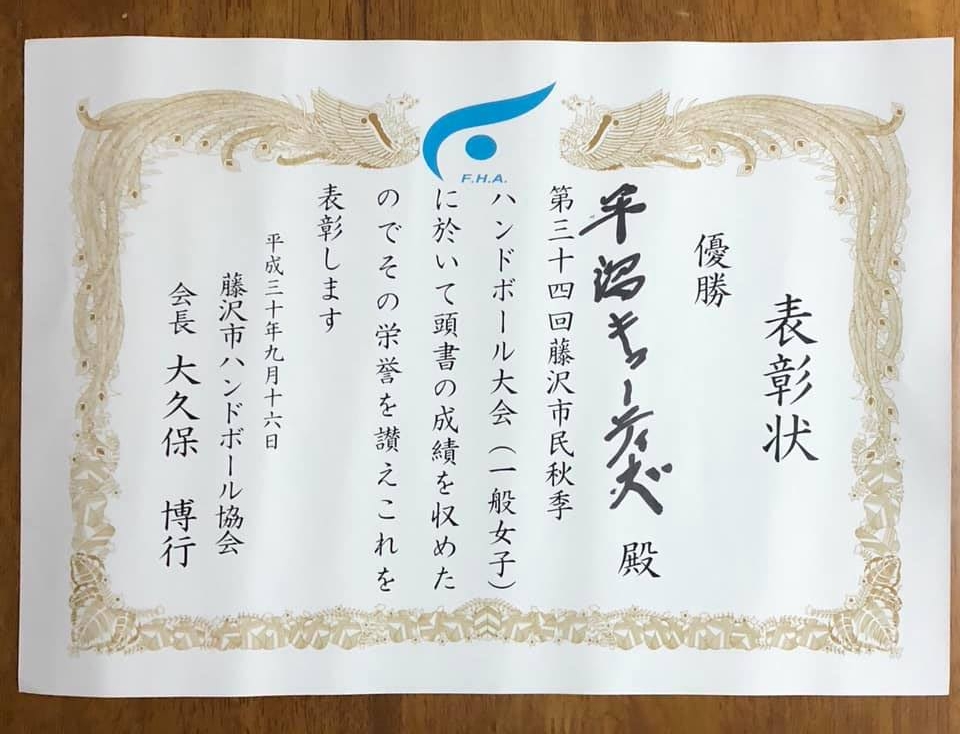 表彰状
優勝
平潟キューティ犬 殿
第三十四回藤沢市民秋季
ハンドボール大会（一般女子）
に於いて頭書の成績を収めた
のでその栄誉を讃えこれを
表彰します
平成三十年九月十六日
藤沢市ハンドボール協会
会長 大久保 博行
F.H.A.